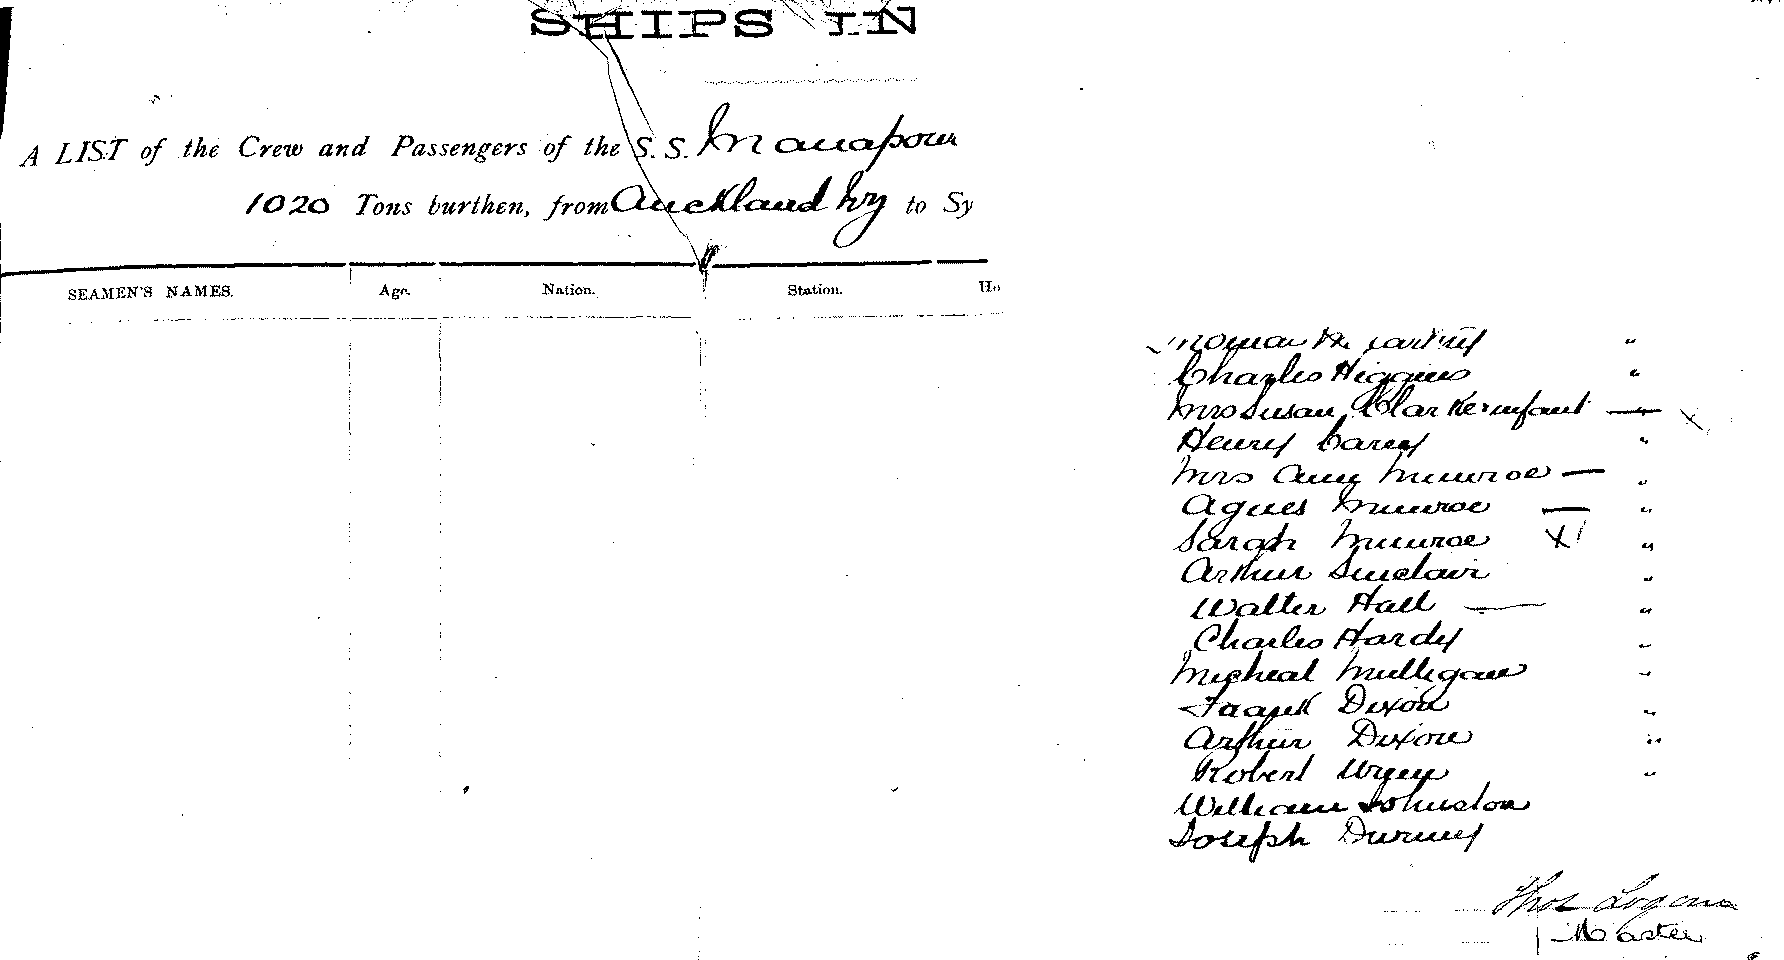 SHIPS IN
A LIST of the Crew and Passengers of the S.S. Manapouri
1020 Tons burthen, from Auckland to Sy
SEAMEN'S NAMES. Age. Nation. Station. Ho
Thomas Mc "
Charles Higgins "
Mrs Susan Clarke & infant — "
Henry Carey "
Mrs Amy Munroe — "
Agnes Munroe — "
Sarah Munroe "
Arthur Sinclair "
Walter Hall — "
Charles Hardy "
Micheal Mulligan "
Frank Dixon "
Arthur Dixon "
Robert "
William Johnston
Joseph
Thos Logan
Master